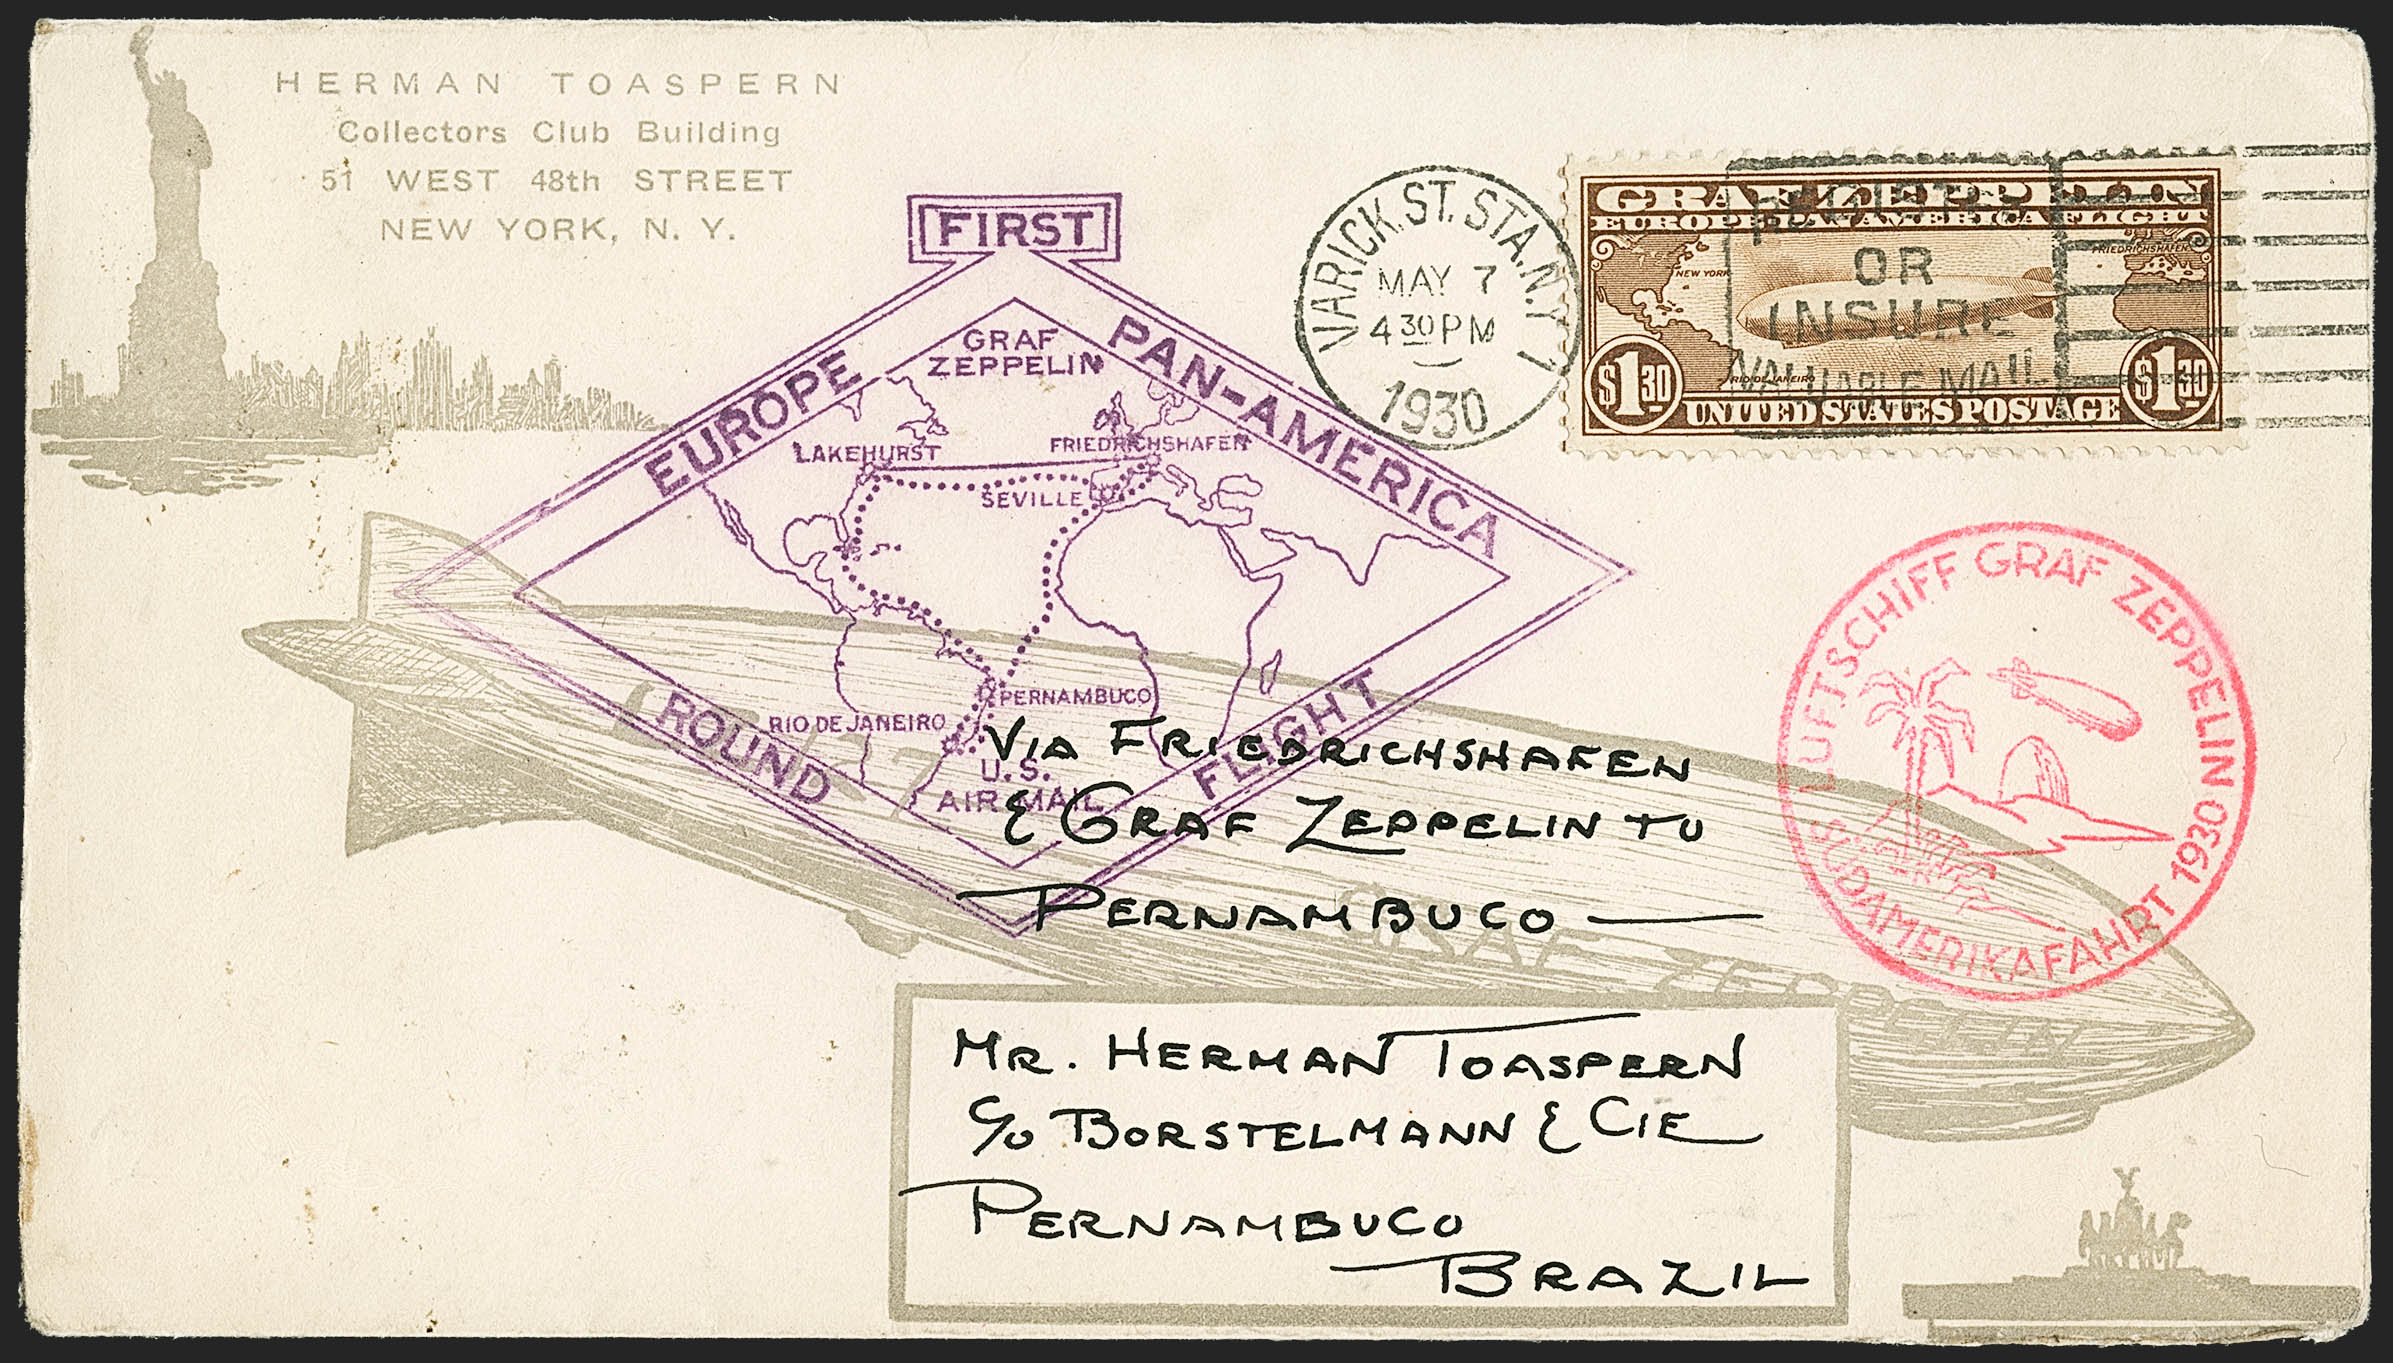 HERMAN TOASPERN
Collectors Club Building
51 WEST 48th STREET
NEW YORK, N. Y.
FIRST
EUROPE
PAN-AMERICA
ROUND
FLIGHT
GRAF
ZEPPELIN
LAKEHURST
FRIEDRICHSHAFEN
SEVILLE
PERNAMBUCO
RIO DE JANEIRO
U.S.
AIR MAIL
VARICK. ST. STA. N.Y.
MAY 7
4 30 PM
1930
OR
INSURE
VALUABLE MAIL
GRAF ZEPPELIN
EUROPE PAN AMERICA FLIGHT
NEW YORK
FRIEDRICHSHAFEN
RIO DE JANEIRO
$1 30
UNITED STATES POSTAGE
$1 30
LUFTSCHIFF GRAF ZEPPELIN
SÜDAMERIKAFAHRT 1930
GRAF ZEPPELIN
VIA FRIEDRICHSHAFEN
& GRAF ZEPPELIN TO
PERNAMBUCO —
MR. HERMAN TOASPERN
c/o BORSTELMANN & CIE
PERNAMBUCO
BRAZIL